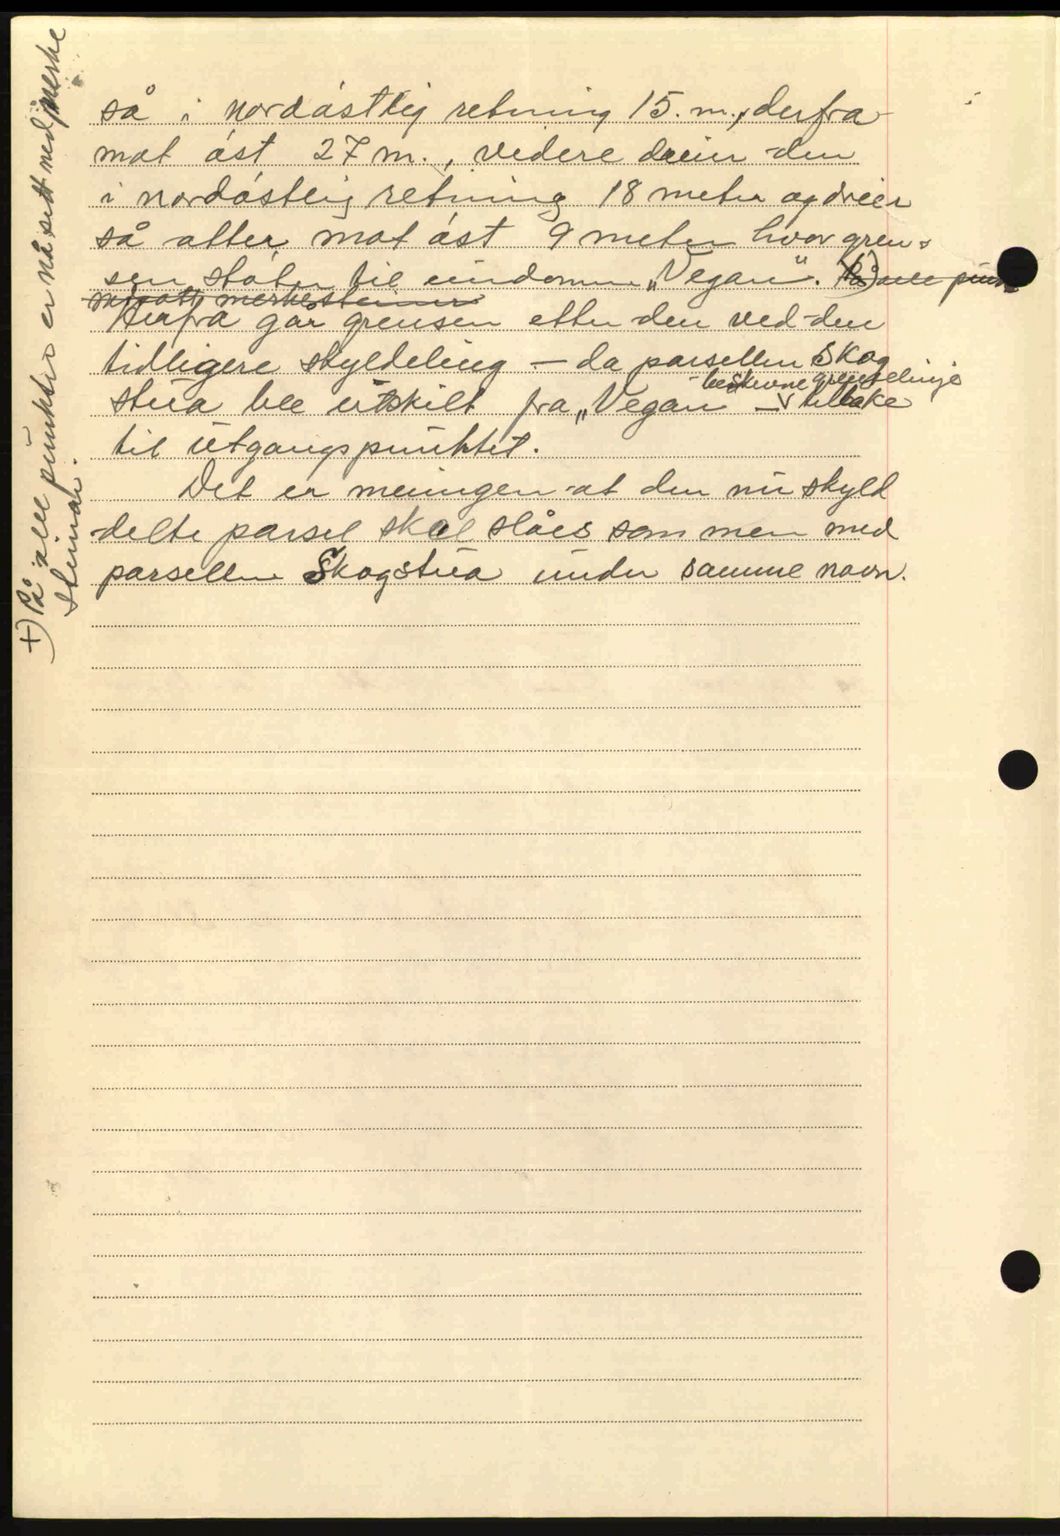 så i nordøstlig retning 15. m., derfra
mot øst 27 m., videre dreier den
i nordøstlig retning 18 meter og dreier
så atter mot øst 9 meter hvor gren-
sen støter til eindommen „Vegan”. +) På alle punk
merkesteiner
Herfra går grensen etter den ved den
tidligere skyldeling – da parsellen Skog
beskrevne grenselinje
stua ble utskilt fra „Vegan – v tilbake
til utgangspunktet.
Det er meningen at den nu skyld
delte parsel skal slåes sammen med
parsellen Skogstua under samme navn.
+) På alle punkter er nå sett ned merke
steinar.